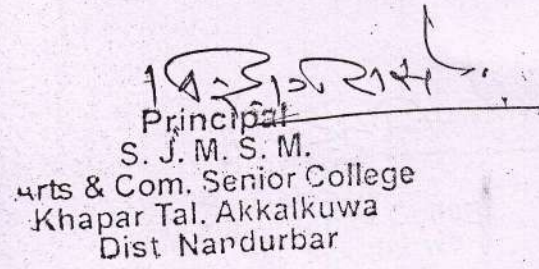 Principal
S. J. M. S. M.
Arts & Com. Senior College
Khapar Tal. Akkalkuwa
Dist Nandurbar